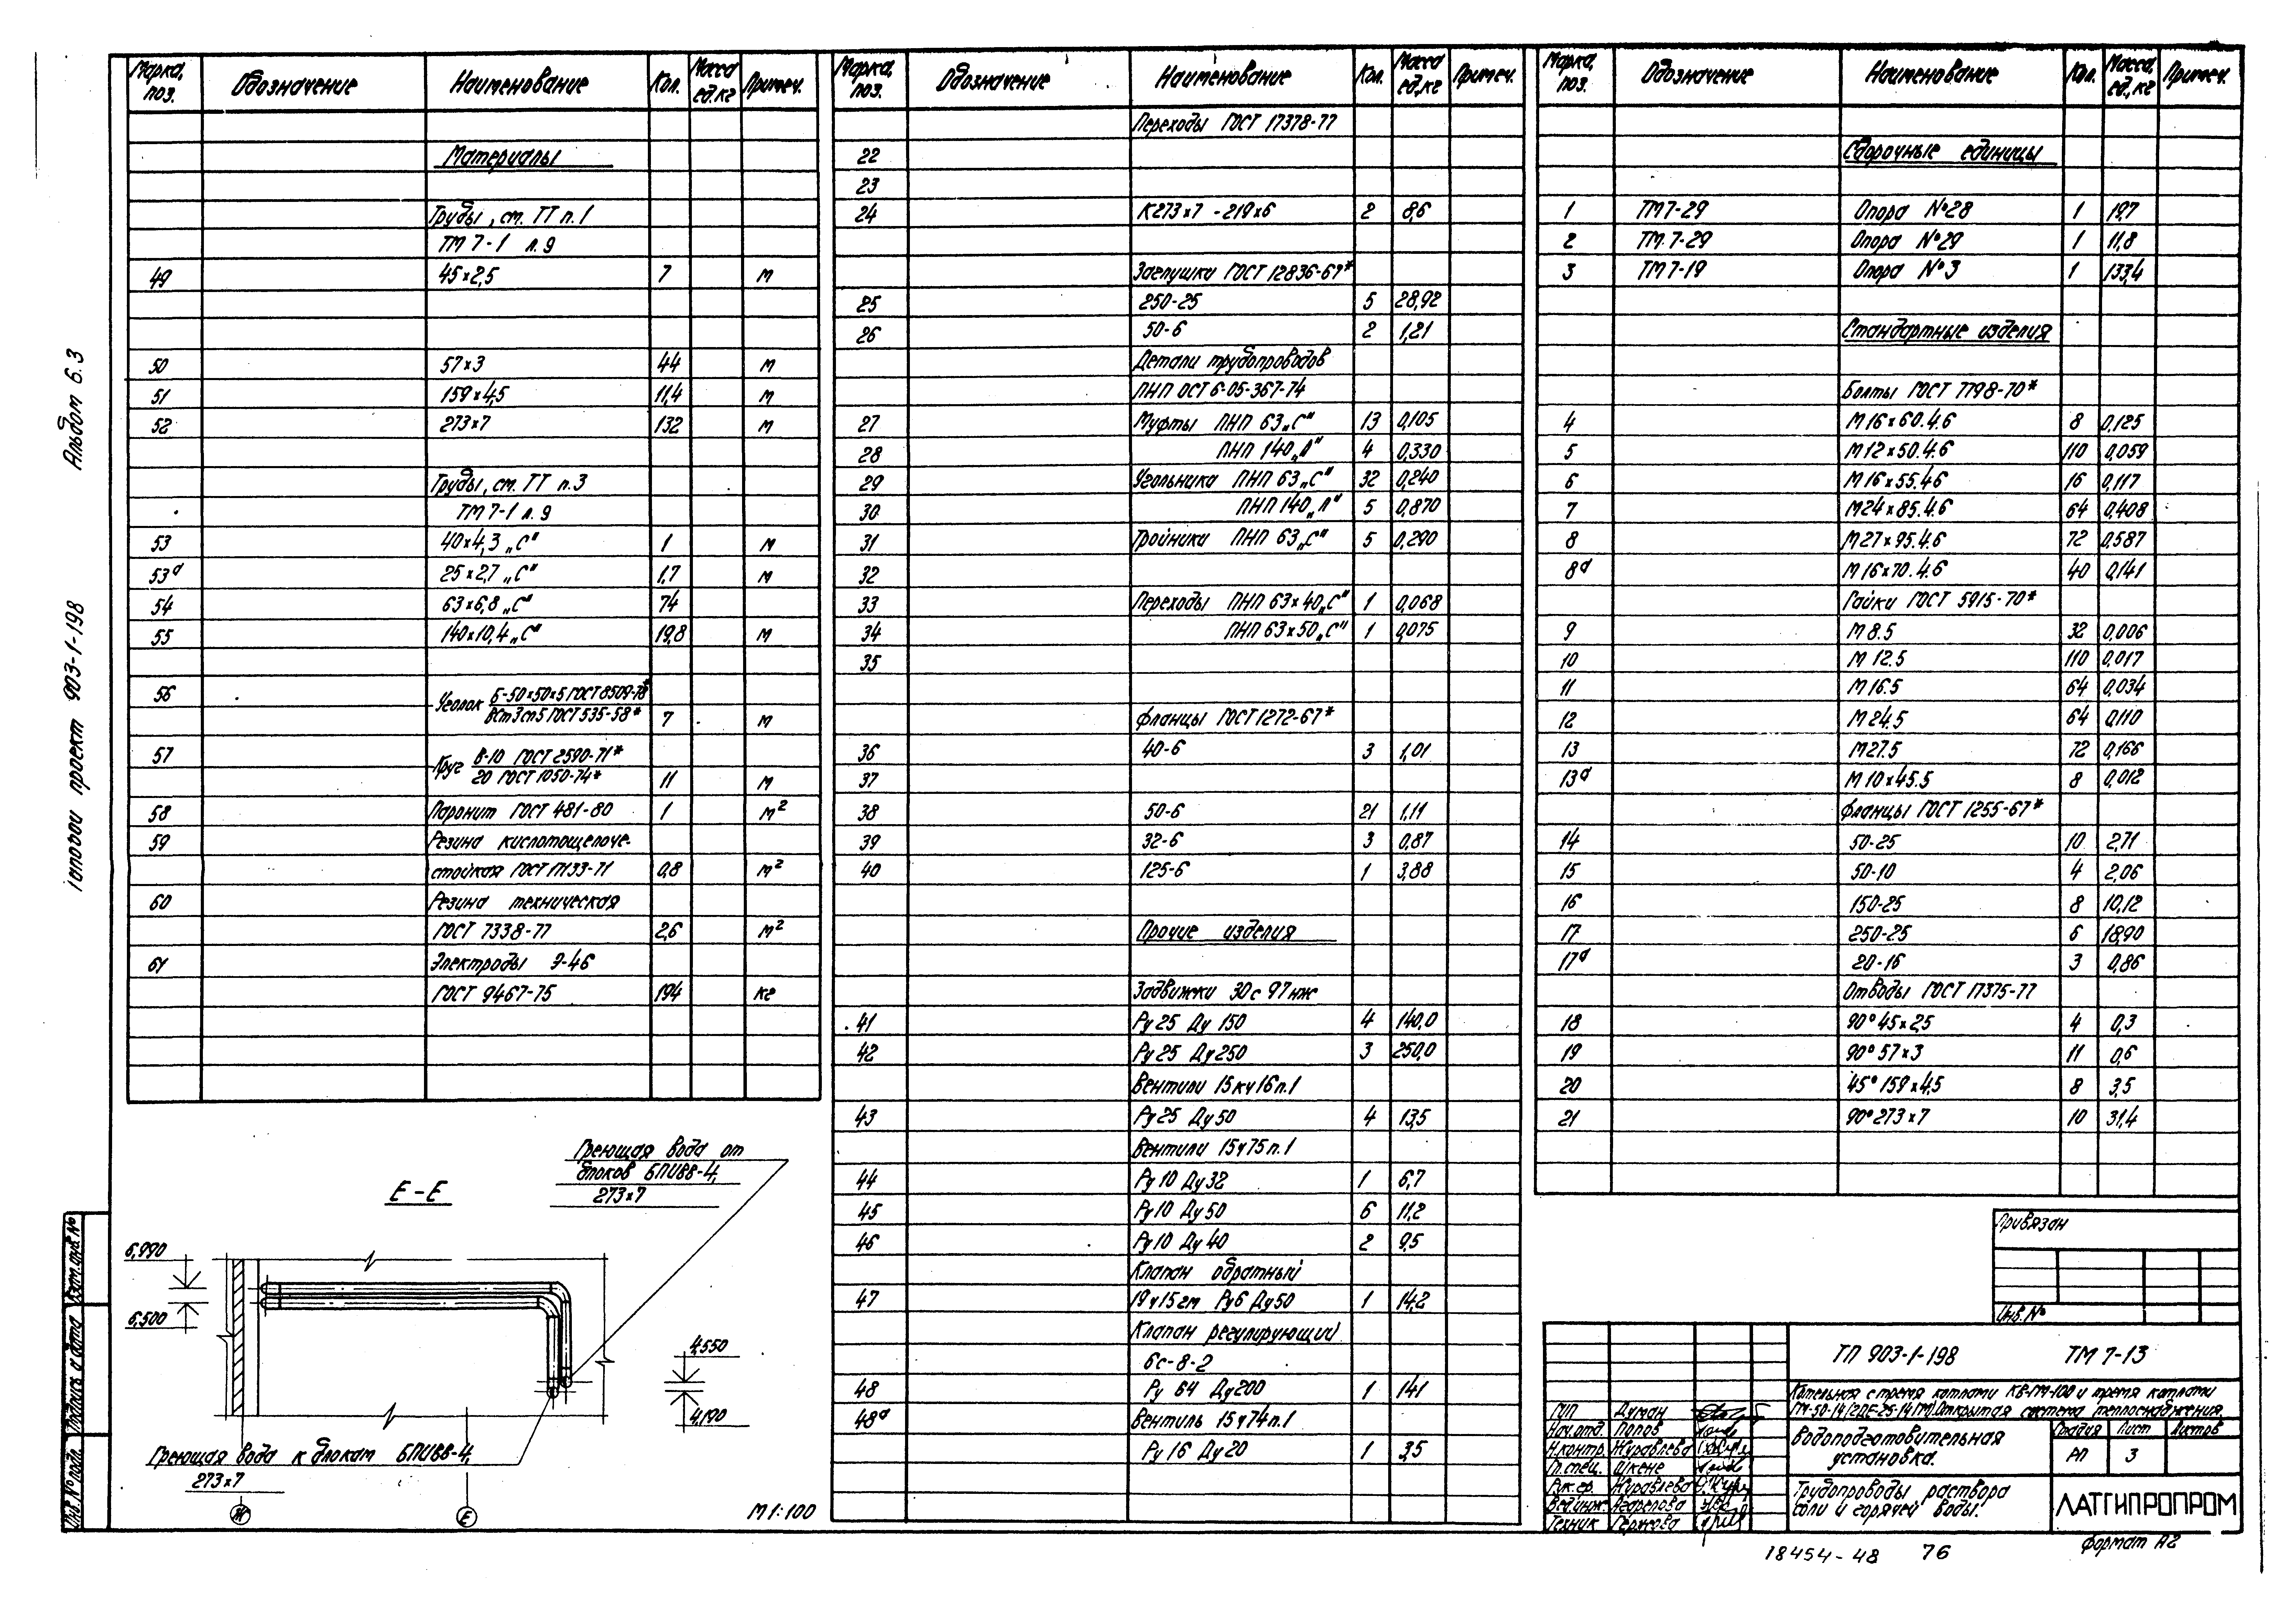 Альбом 6.3
Типовой проект 903-1-198
Марка, поз. Обозначение Наименование Кол. Масса ед.кг Примеч.
Материалы
Трубы, см. ТТ п.1
ТМ 7-1 л. 9
49 45х2,5 7 м
50 57х3 44 м
51 159х4,5 11,4 м
52 273х7 132 м
Трубы, см. ТТ п.3
ТМ 7-1 л. 9
53 40х4,3 „С" 1 м
53а 25х2,7 „С" 1,7 м
54 63х6,8 „С" 74
55 140х10,4 „С" 19,8 м
56 Уголок Б-50х50х5 ГОСТ 8509-78*
ВСт3сп5 ГОСТ 535-58* 7 м
57 Круг В-10 ГОСТ 2590-71*
20 ГОСТ 1050-74* 11 м
58 Паронит ГОСТ 481-80 1 м²
59 Резина кислотощелоче-
стойкая ГОСТ 17133-71 0,8 м²
60 Резина техническая
ГОСТ 7338-77 2,6 м²
61 Электроды Э-46
ГОСТ 9467-75 194 кг
Марка, поз. Обозначение Наименование Кол. Масса ед,кг Примеч.
Переходы ГОСТ 17378-77
22
23
24 К273х7 - 219х6 2 8,6
Заглушки ГОСТ 12836-67*
25 250-25 5 28,92
26 50-6 2 1,21
Детали трубопроводов
ПНП ОСТ 6-05-367-74
27 Муфты ПНП 63 „С" 13 0,105
28 ПНП 140 „Л" 4 0,330
29 Угольники ПНП 63 „С" 32 0,240
30 ПНП 140 „Л" 5 0,870
31 Тройники ПНП 63 „С" 5 0,290
32
33 Переходы ПНП 63х40 „С" 1 0,068
34 ПНП 63х50 „С" 1 0,075
35
Фланцы ГОСТ 1272-67*
36 40-6 3 1,01
37
38 50-6 21 1,11
39 32-6 3 0,87
40 125-6 1 3,88
Прочие изделия
Задвижки 30с 97нж
41 Ру 25 Ду 150 4 140,0
42 Ру 25 Ду 250 3 250,0
Вентили 15кч16п.1
43 Ру 25 Ду 50 4 13,5
Вентили 15ч75п.1
44 Ру 10 Ду 32 1 6,7
45 Ру 10 Ду 50 6 11,2
46 Ру 10 Ду 40 2 9,5
Клапан обратный
47 19ч15гм Ру6 Ду50 1 14,2
Клапан регулирующий
6с-8-2
48 Ру 64 Ду200 1 141
48а Вентиль 15ч74п.1
Ру 16 Ду 20 1 3,5
Марка, поз. Обозначение Наименование Кол. Масса, ед., кг Примеч.
Сборочные единицы
1 ТМ7-29 Опора №28 1 19,7
2 ТМ.7-29 Опора №29 1 11,8
3 ТМ7-19 Опора №3 1 133,4
Стандартные изделия
Болты ГОСТ 7798-70*
4 М16х60.4.6 8 0,125
5 М12х50.4.6 110 0,059
6 М16х55.4.6 16 0,117
7 М24х85.4.6 64 0,408
8 М27х95.4.6 72 0,587
8а М16х70.4.6 40 0,141
Гайки ГОСТ 5915-70*
9 М8.5 32 0,006
10 М12.5 110 0,017
11 М16.5 64 0,034
12 М24.5 64 0,110
13 М27.5 72 0,166
13а М10х45.5 8 0,012
Фланцы ГОСТ 1255-67*
14 50-25 10 2,71
15 50-10 4 2,06
16 150-25 8 10,12
17 250-25 6 18,90
17а 20-16 3 0,86
Отводы ГОСТ 17375-77
18 90° 45х2,5 4 0,3
19 90° 57х3 11 0,6
20 45° 159х4,5 8 3,5
21 90° 273х7 10 31,4
Е-Е
Греющая вода от
блоков БПИВВ-4,
273х7
6,990
6,500
4,550
4,190
Греющая вода к блокам БПИВВ-4,
273х7
Ж Е
М 1:100
Взам.инв.№
Подпись и дата
Инв.№ подл.
Привязан
Инв.№
ТП 903-1-198 ТМ 7-13
Котельная с тремя котлами КВ-ГМ-100 и тремя котлами
ГМ-50-14/2(ДЕ-25-14 ГМ). Открытая система теплоснабжения.
ГИП Думан
Нач.отд. Попов
Н.контр. Журавлева
Гл.спец. Шкене
Рук.гр. Журавлева
Вед.инж.
Техник
Водоподготовительная
установка.
Стадия Лист Листов
РП 3
Трубопроводы раствора
соли и горячей воды.
ЛАТГИПРОПРОМ
18454-48 76
Формат А2